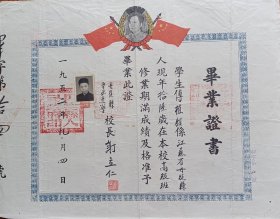 畢業證書
學生傅 係江蘇省丹 縣
人現年拾陸歲在本校高級班
修業期滿成績及格准予
畢業此證
校長謝立仁
一九五二年 月四日
畢字第拾 號